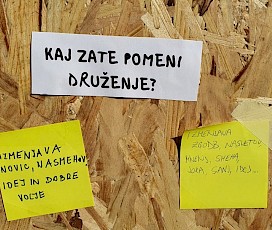 KAJ ZATE POMENI
DRUŽENJE?
IZMENJAVA
NOVIC, NASMEHOV,
IDEJ IN DOBRE
VOLJE
IZMENJAVA
ZGODB, NASVETOV
MNENJ, SMEHA,
SANJ, IDEJ